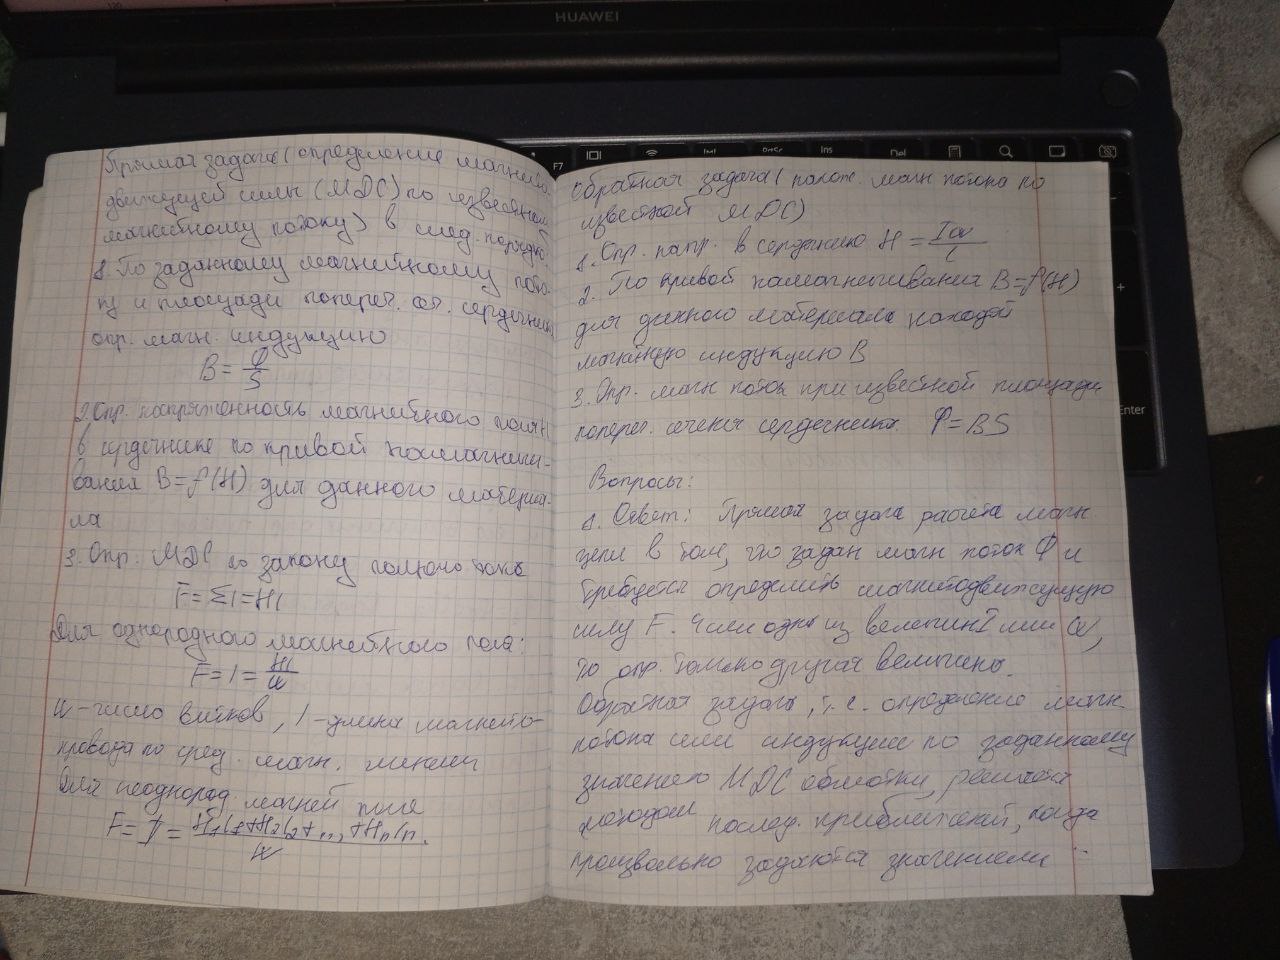 HUAWEI
F7
Ins
Del
Enter
Прямая задача (определение магнито-
движущей силы (МДС) по известному
магнитному потоку) в след. порядке:
1. По заданному магнитному пото-
ку и площади попереч. сеч. сердечника
опр. магн. индукцию
B = Ф/S
2. Опр. напряженность магнитного поля H
в сердечнике по кривой намагничи-
вания B=f(H) для данного материа-
ла
3. Опр. МДС по закону полного тока
F=ΣI=Hl
Для однородного магнитного поля:
F=I=Hl/W
W-число витков, l-длина магнито-
провода по сред. магн. линии
Для неоднород. магнит поля
F=I=H1l1+H2l2+...+Hnln/W
Обратная задача (полож. магн потока по
известной МДС)
1. Опр. напр. в сердечнике H=Iw/L
2. По кривой намагничивания B=f(H)
для данного материала находят
магнитную индукцию B
3. Опр. магн поток при известной площади
попереч. сечения сердечника Ф=BS
Вопросы:
1. Ответ: Прямая задача расчета магн
цепи в том, что задан магн поток Ф и
требуется определить магнитодвижущую
силу F. Если одна из величин I или W,
то опр. только другая величина.
Обратная задача, т.е. определение магн.
потока или индукции по заданному
значению МДС обмотки, решается
методом послед. приближений, когда
произвольно задаются значениями